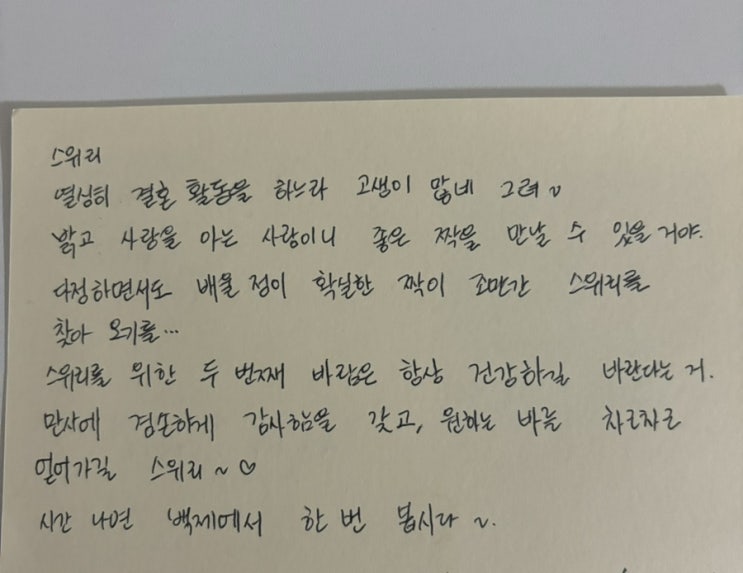 스위리
열심히 결혼 활동을 하느라 고생이 많네 그려~
밝고 사랑을 아는 사람이니 좋은 짝을 만날 수 있을 거야.
다정하면서도 배울 점이 확실한 짝이 조만간 스위리를
찾아 오기를…
스위리를 위한 두 번째 바람은 항상 건강하길 바란다는 거.
만사에 겸손하게 감사함을 갖고, 원하는 바를 차근차근
얻어가길 스위리~♡
시간 나면 백제에서 한 번 봅시다~.